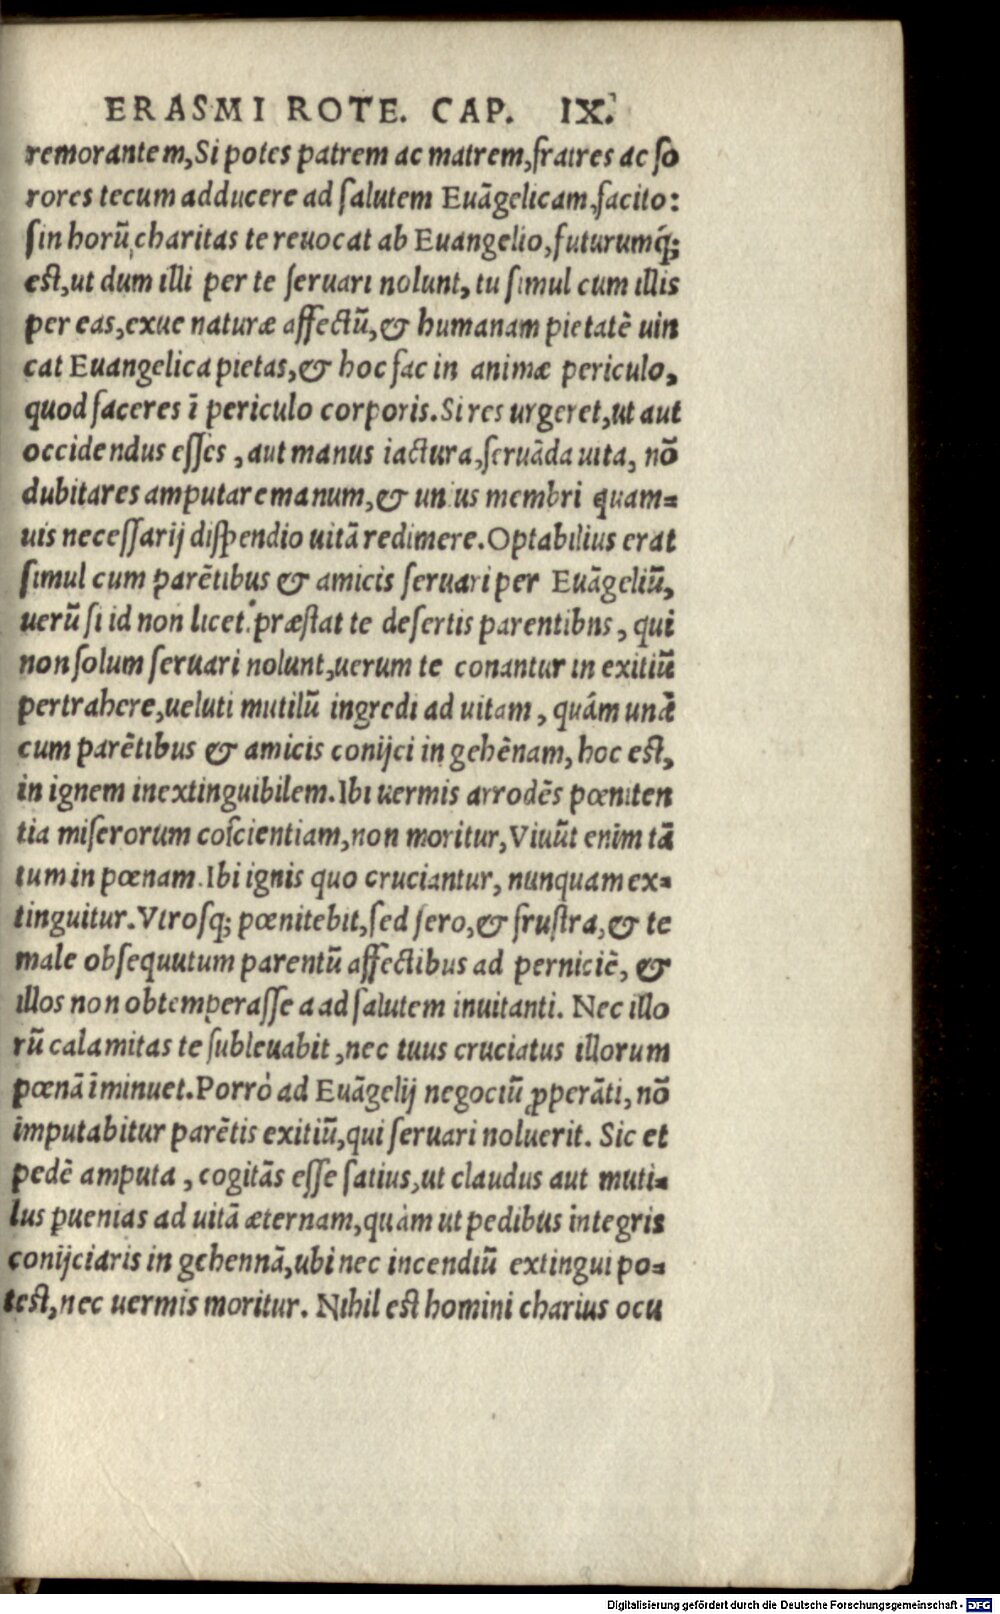 ERASMI ROTE. CAP. IX.
remorantem, Si potes patrem ac matrem, fratres ac so
rores tecum adducere ad salutem Euāgelicam, facito:
sin horū, charitas te reuocat ab Euangelio, futurumq́;
est, ut dum illi per te seruari nolunt, tu simul cum illis
pereas, exue naturæ affectū, & humanam pietatē uin
cat Euangelica pietas, & hoc fac in animæ periculo,
quod faceres ī periculo corporis. Si res urgeret, ut aut
occidendus esses, aut manus iactura, seruāda uita, nō
dubitares amputare manum, & unius membri quam-
uis necessarij dispendio uitā redimere. Optabilius erat
simul cum parētibus & amicis seruari per Euāgeliū,
uerū si id non licet: præstat te desertis parentibns, qui
non solum seruari nolunt, uerum te conantur in exitiū
pertrahere, ueluti mutilū ingredi ad uitam, quám unà
cum parētibus & amicis conijci in gehēnam, hoc est,
in ignem inextinguibilem. Ibi uermis arrodēs pœniten
tia miserorum cōscientiam, non moritur, Viuūt enim tā
tum in pœnam. Ibi ignis quo cruciantur, nunquam ex-
tinguitur. Vtrosq; pœnitebit, sed sero, & frustra, & te
male obsequutum parentū affectibus ad perniciē, &
illos non obtemperasse a ad salutem inuitanti. Nec illo
rū calamitas te subleuabit, nec tuus cruciatus illorum
pœnā īminuet. Porrò ad Euāgelij negociū ꝓperāti, nō
imputabitur parētis exitiū, qui seruari noluerit. Sic et
pedē amputa, cogitās esse satius, ut claudus aut muti-
lus ꝑuenias ad uitā æternam, quàm ut pedibus integris
conijciaris in gehennā, ubi nec incendiū extingui po-
test, nec uermis moritur. Nihil est homini charius ocu
Digitalisierung gefördert durch die Deutsche Forschungsgemeinschaft - DFG